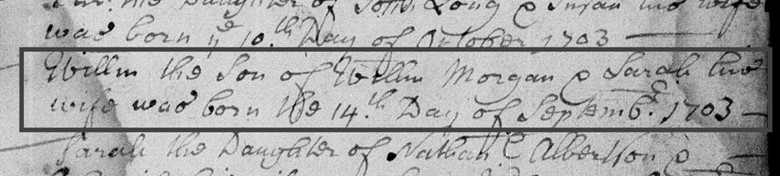 the Daughter of John Long & Susan his wife
was born ye 10.th Day of October 1703
Willm the Son of Willm Morgan & Sarah his
wife was born the 14.th Day of Septemb.r 1703
Sarah the Daughter of Nathan.l Albertson &